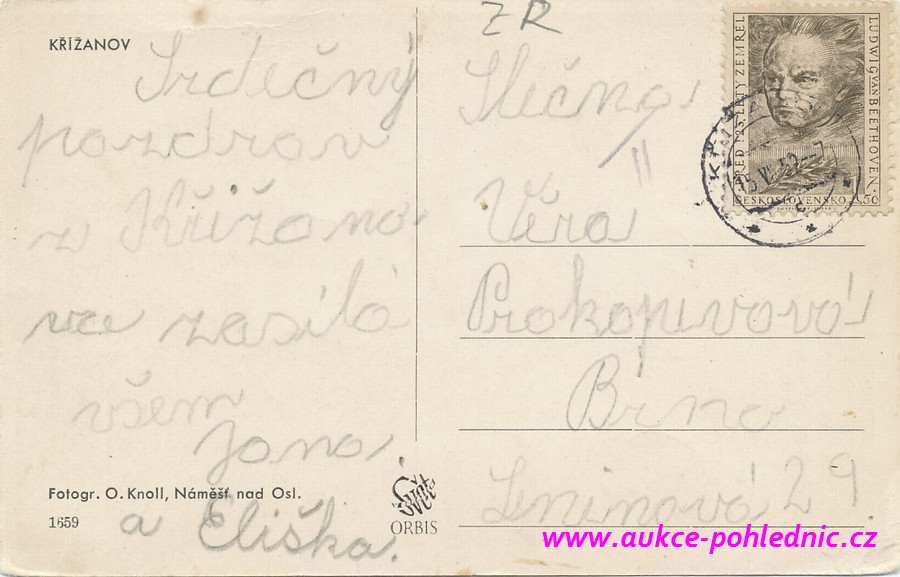 KŘÍŽANOV
ZR
Srdečný
pozdrav
z Křižano
vce zasílá
všem
Jana
a Eliška.
Fotogr. O. Knoll, Náměšť nad Osl.
1659
Svět
ORBIS
Slečna
II
Věra
Prokopivová
Brno
Leninová 29
PŘED 125 LETY ZEMŘEL
LUDWIG VAN BEETHOVEN
ČESKOSLOVENSKO
1.50
www.aukce-pohlednic.cz